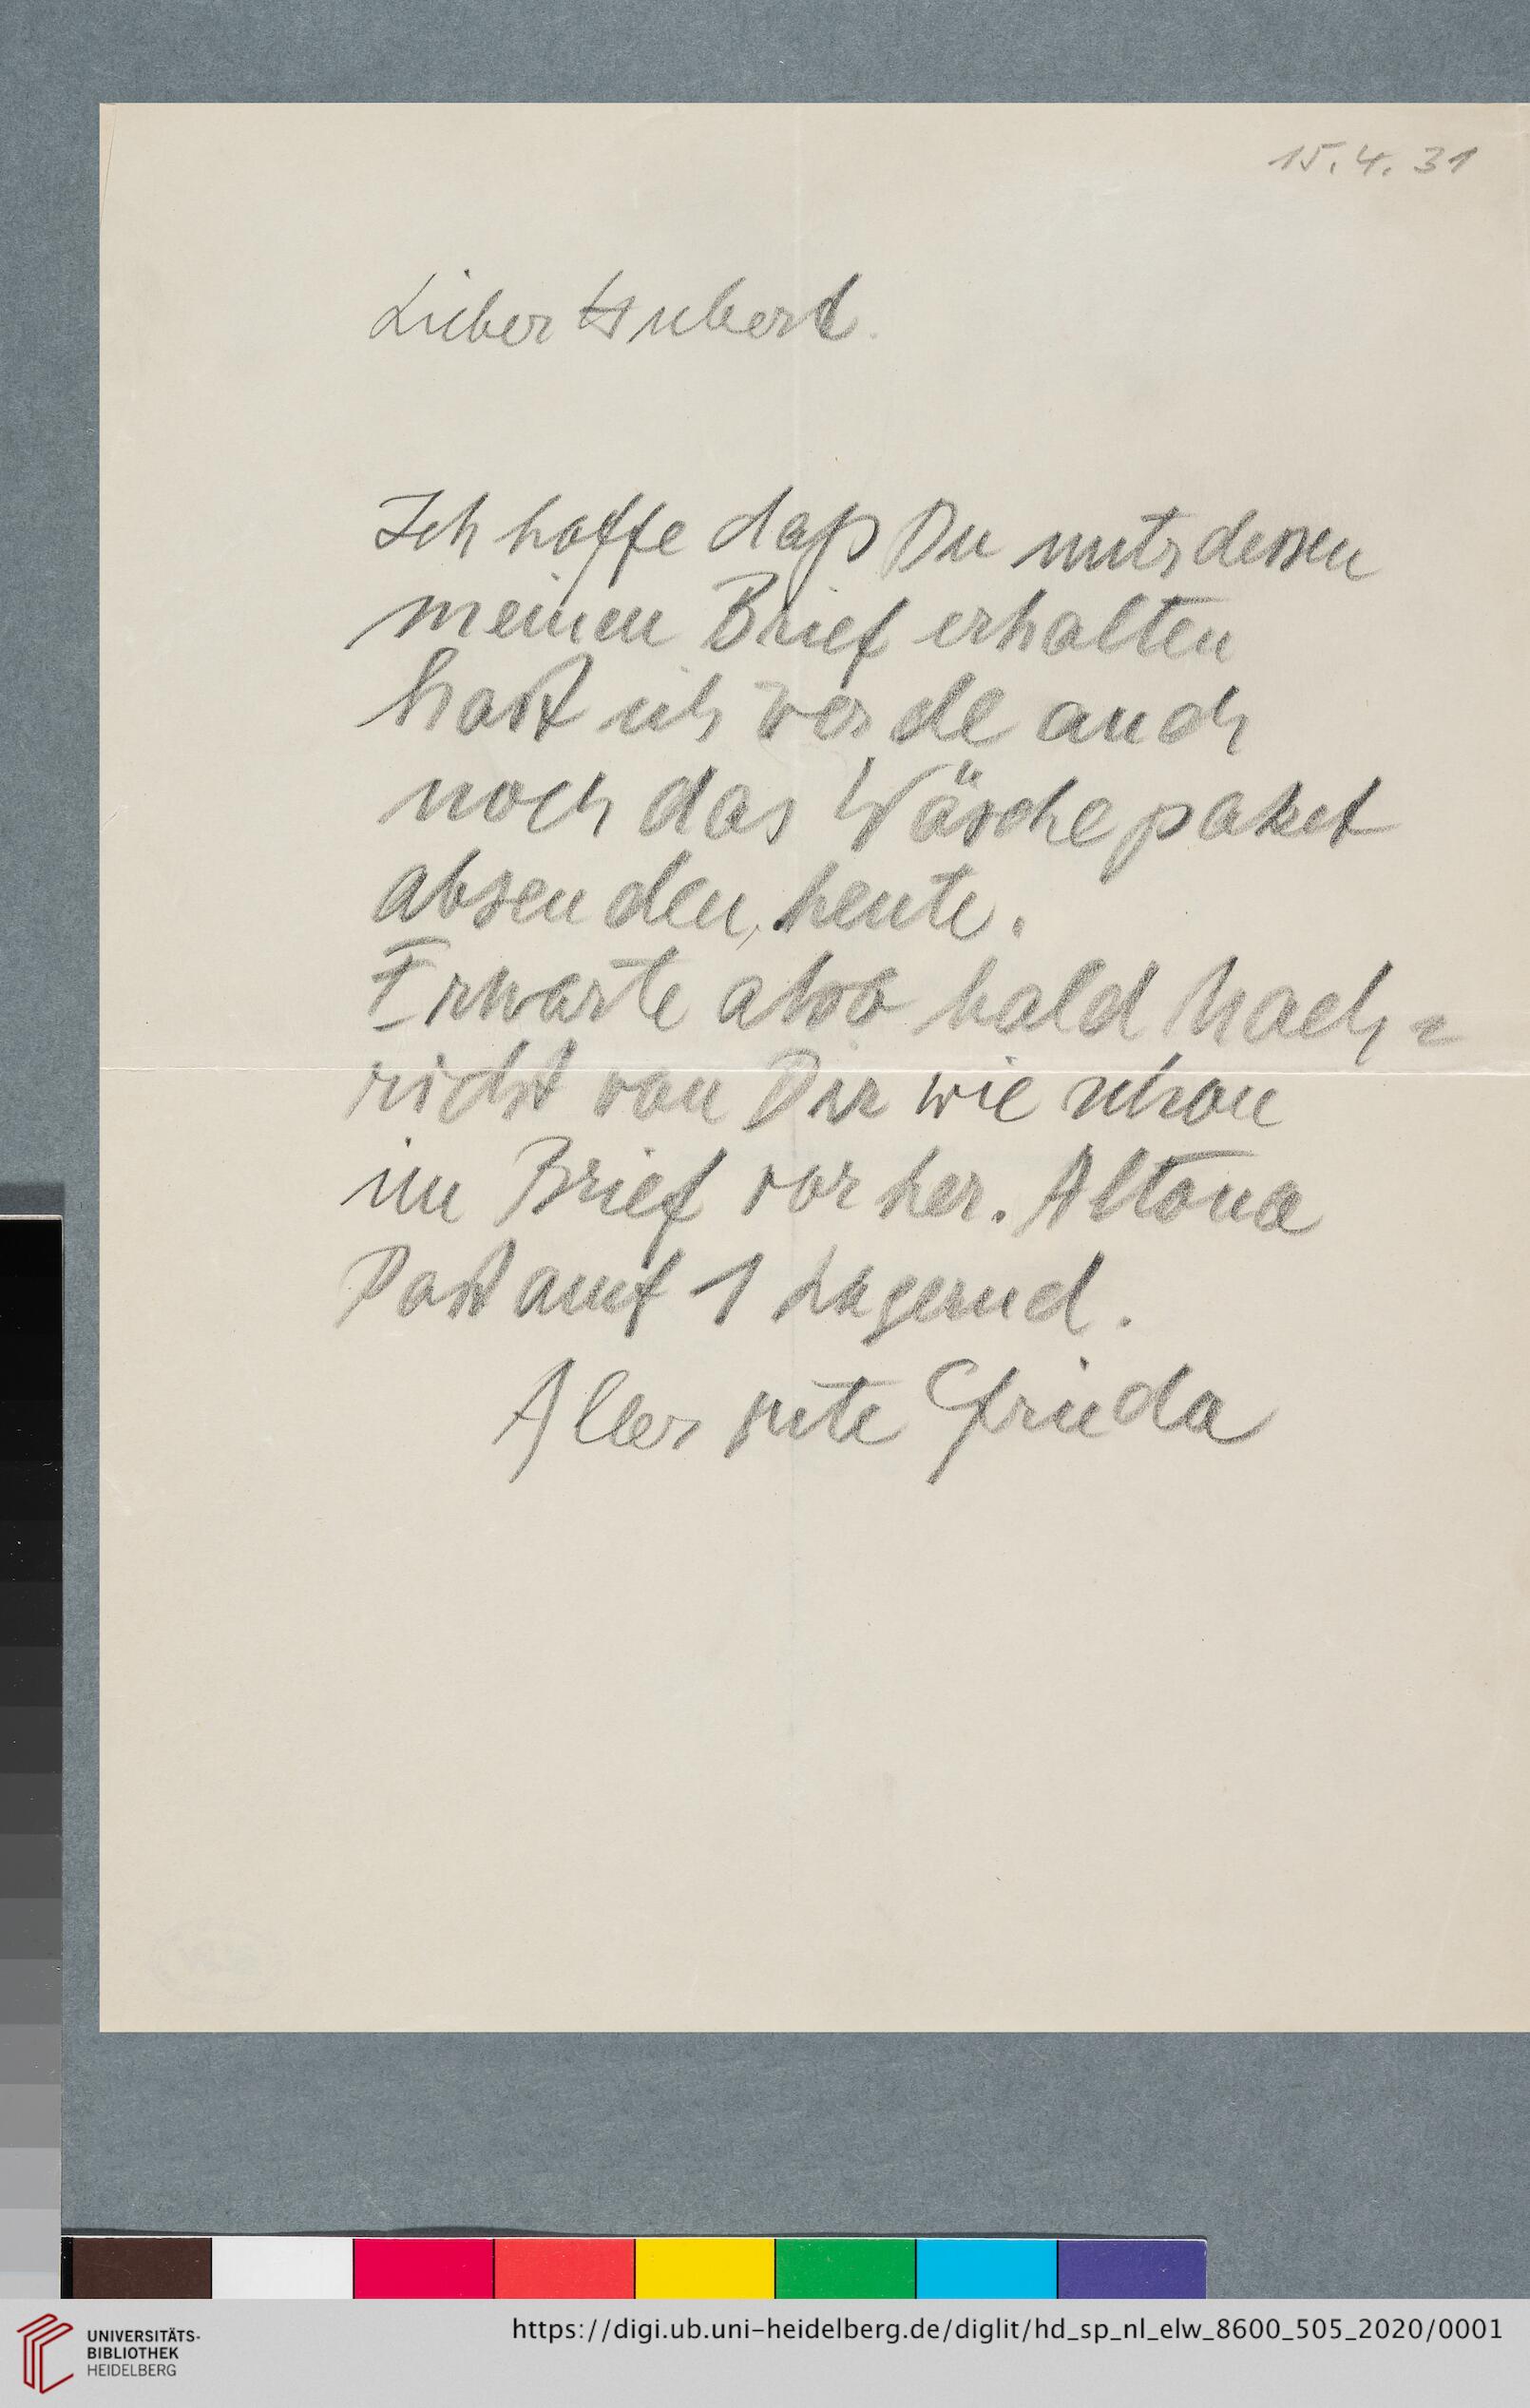 15.4.31
Lieber Hubert.
Ich hoffe daß Du unterdessen
meinen Brief erhalten
hast ich werde auch
noch das Wäschepaket
absenden, heute.
Erwarte also bald Nach=
richt von Dir wie schon
im Brief vorher. Altona
Postamt 1 Lagernd.
Alles gute Frieda
UNIVERSITÄTS-
BIBLIOTHEK
HEIDELBERG
https://digi.ub.uni-heidelberg.de/diglit/hd_sp_nl_elw_8600_505_2020/0001